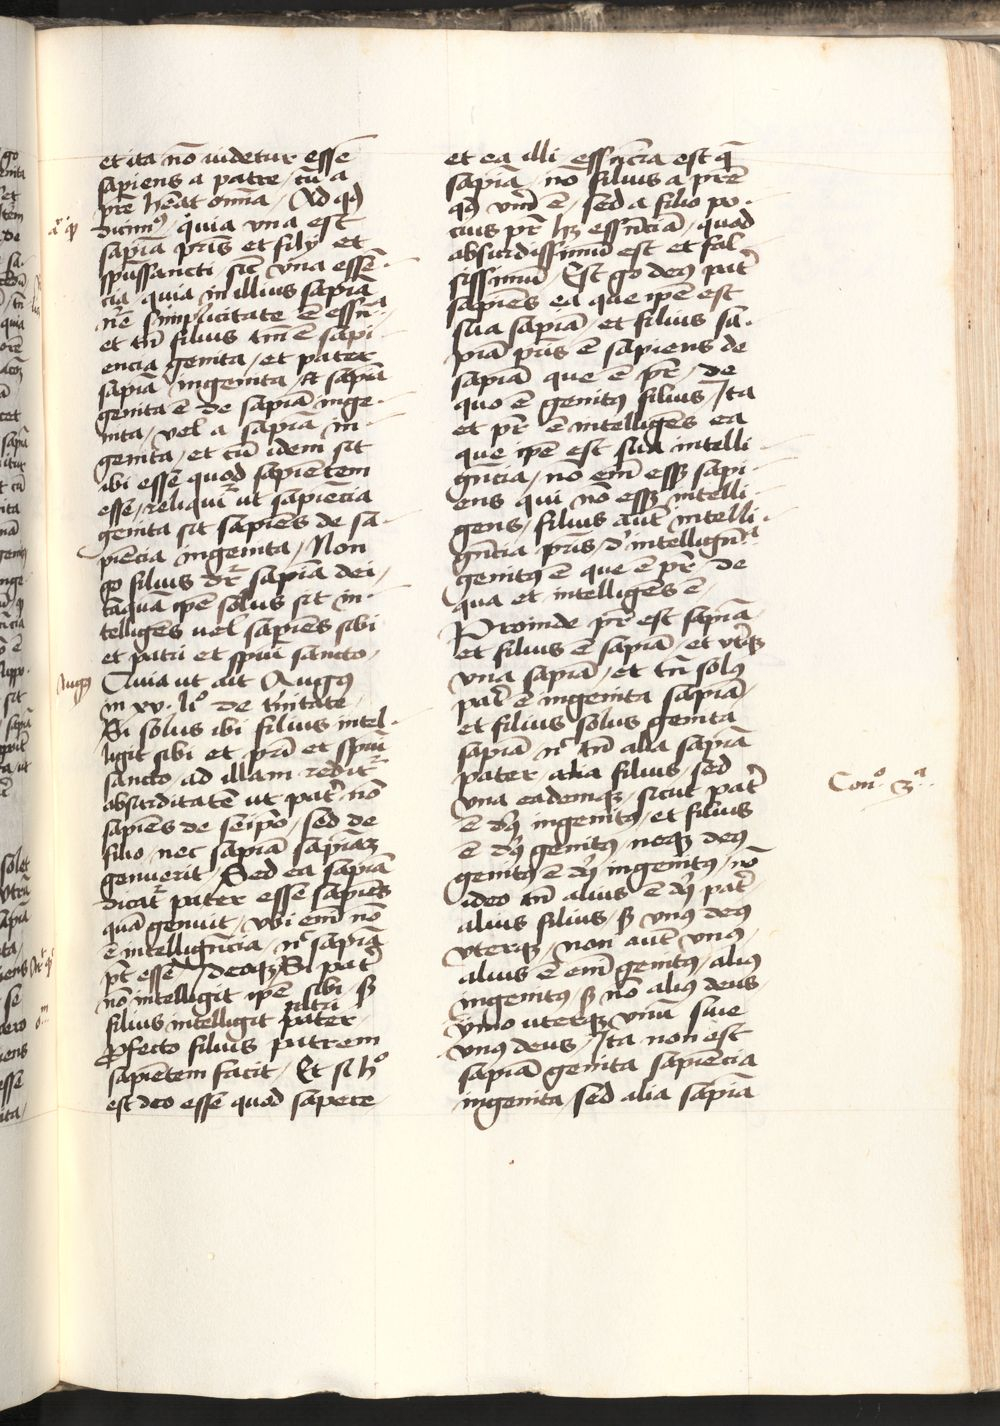 et ita nō uidetur esse
sapiens a patre / cū a
prē hēat omīa / Ad qd
dicim9 / quia una est
sapīa pris et filij et
spussancti sic una essen-
cia / quia in illius sapīa
nrē simplicitate ē essn̄a
et tn̄ filius tm̄ ē sapi
encia genita / et pater
sapīa ingenita / Et sapīa
genita ē de sapīa inge-
nita / vel a sapīa in-
genita / et cū idem sit
ibi esse quod sapientem
esse / reliquit ut sapiēcia
genita sit sapiens de sa-
piēcia ingenita / Non
go filius dr sapīa dei /
tāquā ipē solus sit in-
telligens uel sapiens sibi
et patri et spui sancto /
Quia ut ait Aug9
in xv. li° de tr̄nitate
Si solus ibi filius intel-
ligit sibi et pri et spui
sancto / ad illam redit
absurditatē ut pat̄ nō
sapiens de seipo / sed de
filio / nec sapīa sapīaz
genuerit / Sed ea sapīa
dicat pater esse sapiens
quā genuit / ubi em̄ nō
ē intellign̄cia / nc sapīa
pt esse / Ideoqz Si pat̄
nō intelligit ipē sibi / sz
filius intelligit patri
pater /
Pfecto filius patrem
sapiētem facit / Et si h°
est deo esse quod sapere
et ea illi essn̄cia est q̄
sapīa / nō filius a prē
qd vm̄ ē / sed a filio po-
cius pr̄ hz essn̄ciā / quod
absurdissimū est et fal
sissimū / Est go de9 pat̄
sapiens ea que ipē est
sua sapīa / et filius sa-
pīa pris ē sapiens de
sapīa que ē pr̄ / de
quo ē genit9 filius / Ita
et pr̄ ē intelligens ea
que ipē est sua intelli
gn̄cia / nō em̄ essz sapi-
ens qui nō essz intelli-
gens / filius aūt intelli-
gn̄cia pris / d' intellign̄a
genit9 ē que ē pr̄ / de
qua et intelligens ē /
Proinde pr̄ est sapīa
et filius ē sapīa / et vt̄qz
una sapīa / et tn̄ sol9
pat̄ ē ingenita sapīa /
et filius solus genita
sapīa nc tn̄ alia sapīa
pater alia filius / sed
una eademqz / sicut pat̄
ē d9 ingenit9 / et filius
ē d9 genit9 / neqz de9
genit9 ē d9 ingenit9 / nō
ideo tn̄ alius ē d9 pat̄ /
alius filius / sz un9 de9
uterqz / non aūt un9 /
alius ē em̄ genit9 / ali9
ingenit9 / sz nō ali9 deus
ymo uterqz unū siue
un9 deus / Ita non est
sapīa genita sapiēcia
ingenita / sed alia sapīa
Aug9
Con° 3a